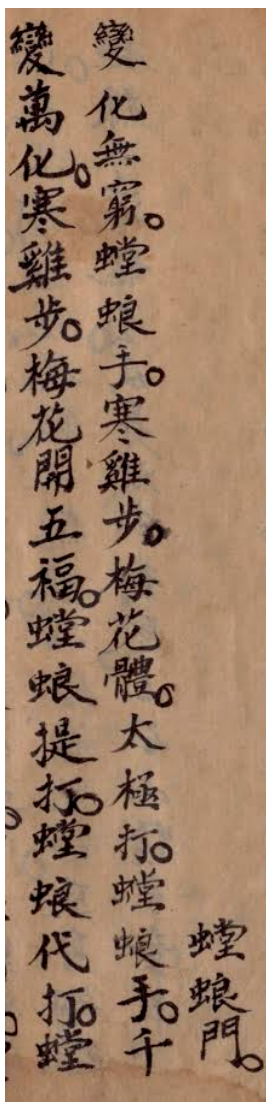 螳螂門。
變化無窮。螳螂手。寒雞步。梅花體。太極打。螳螂手。千
變萬化。寒雞步。梅花開五福。螳螂提打。螳螂代打。螳